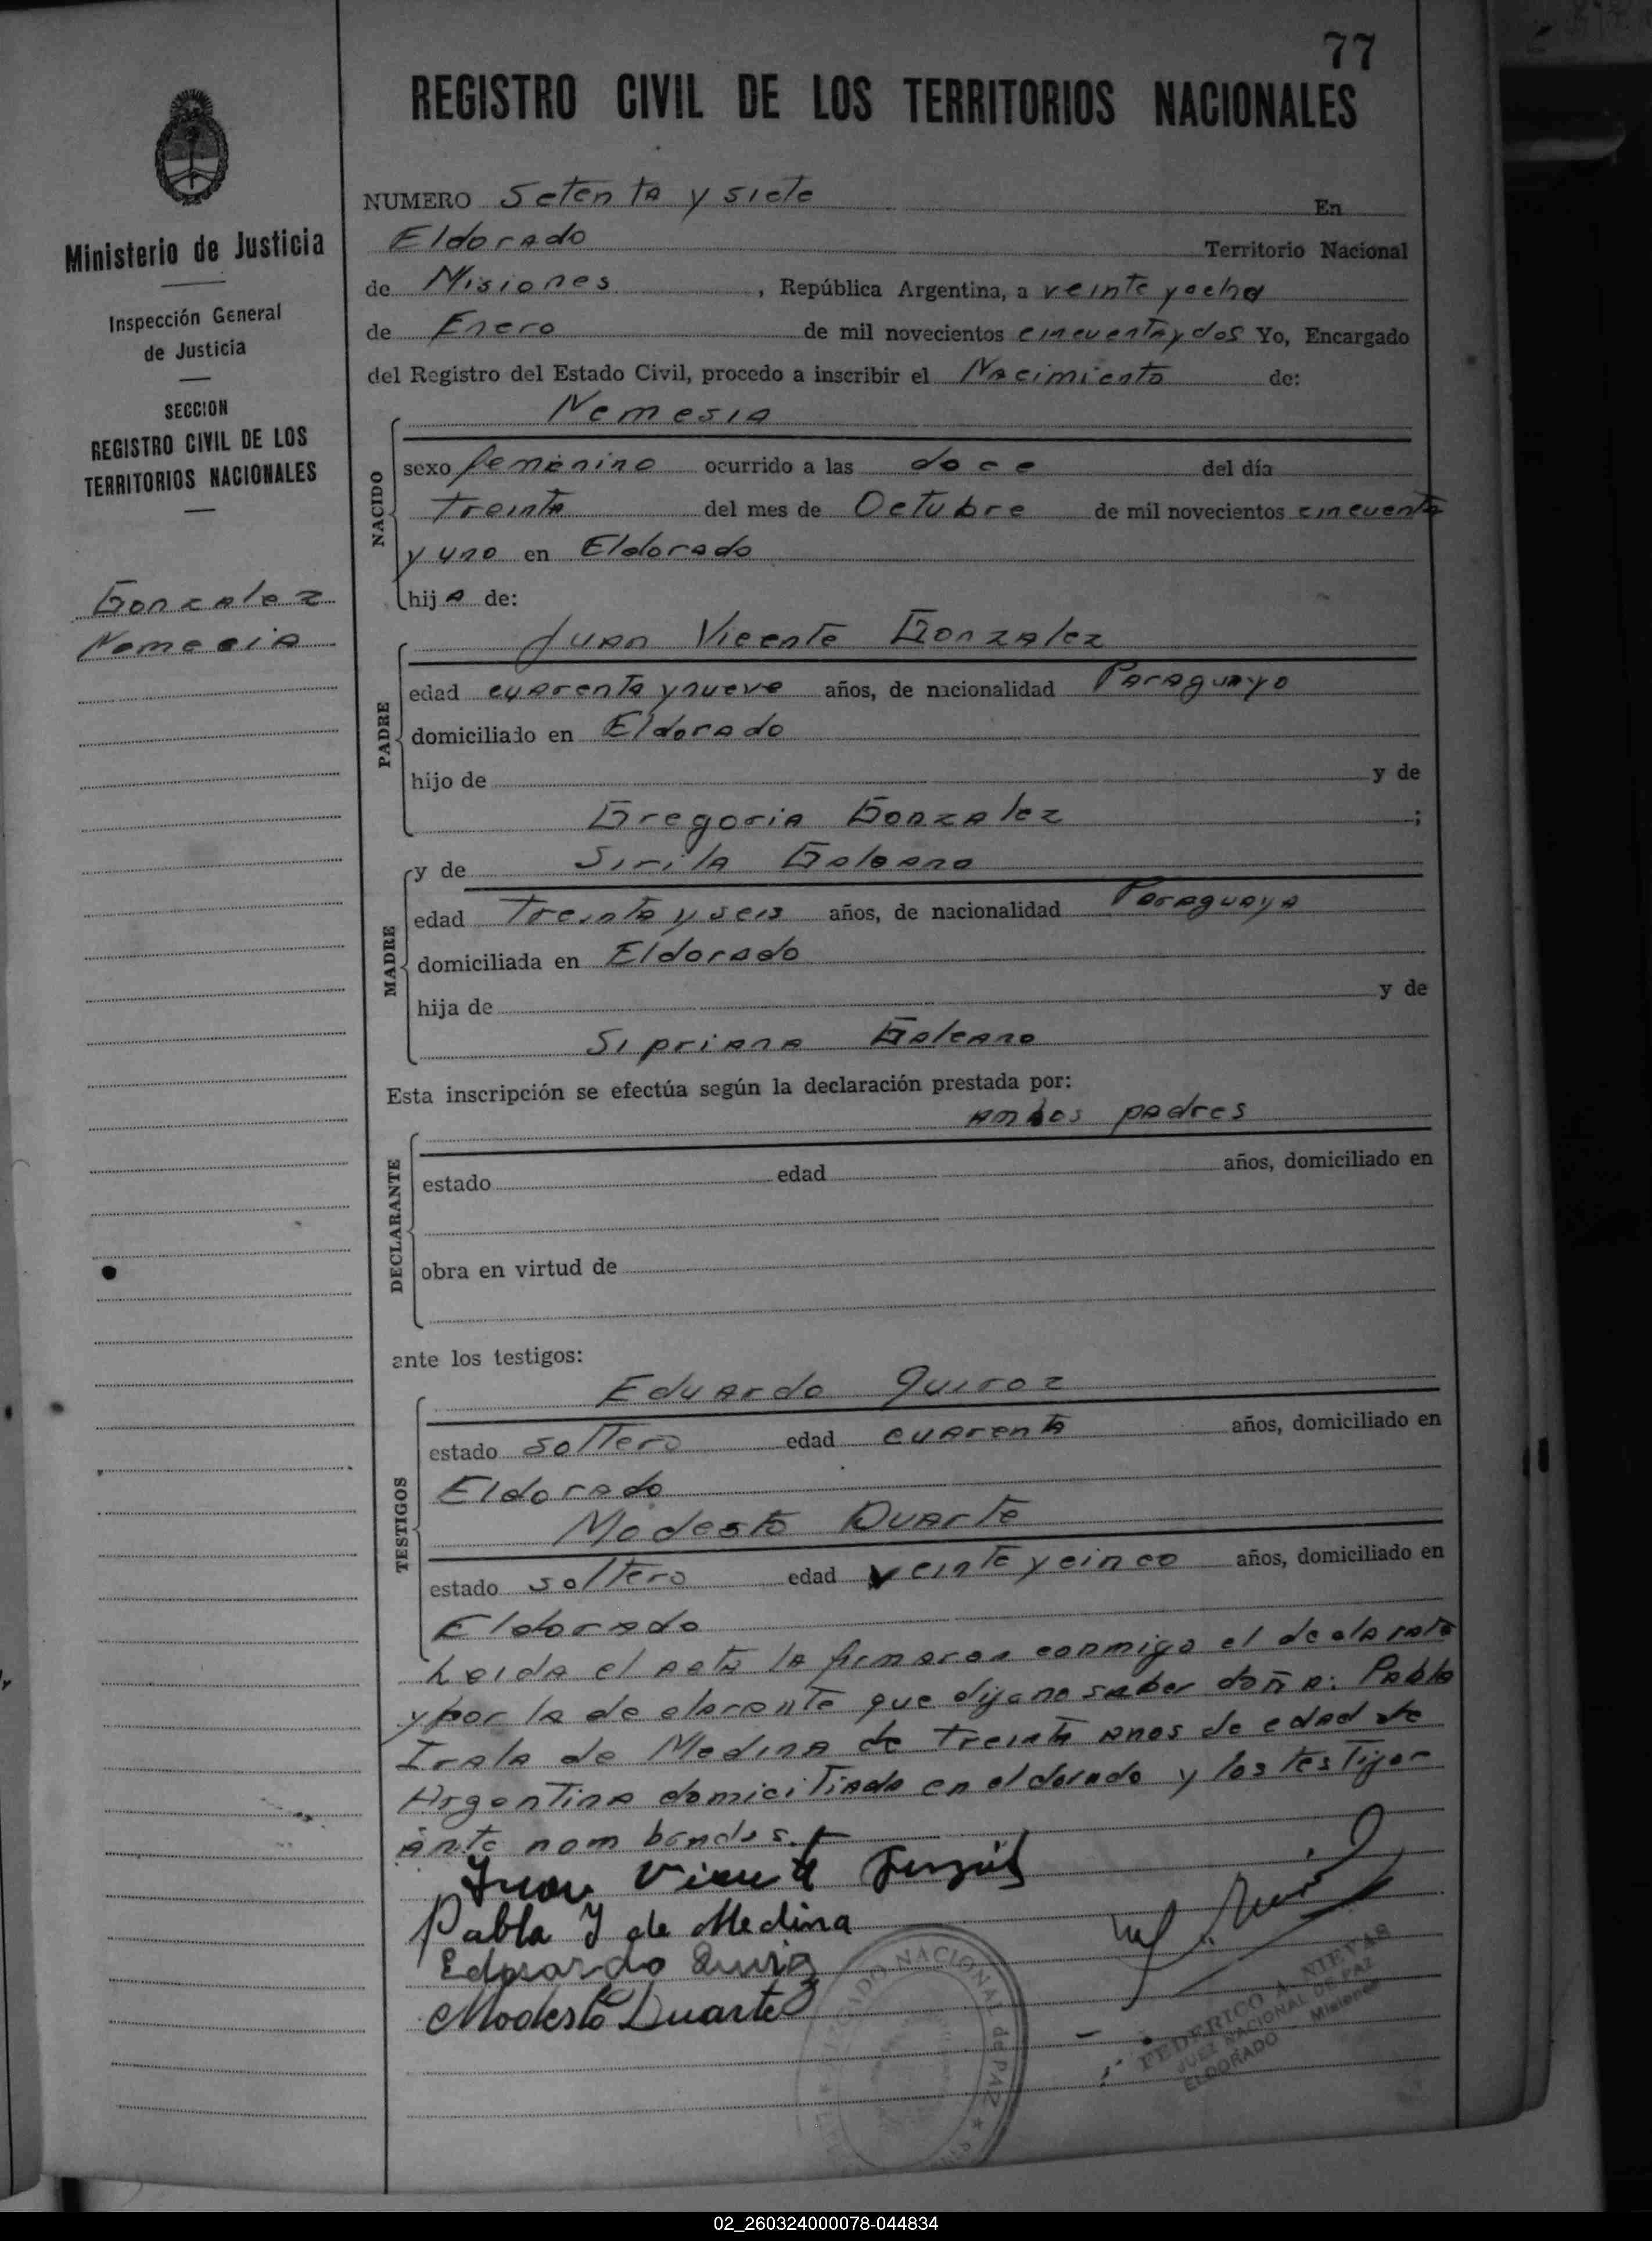 77
REGISTRO CIVIL DE LOS TERRITORIOS NACIONALES
Ministerio de Justicia
Inspección General
de Justicia
SECCION
REGISTRO CIVIL DE LOS
TERRITORIOS NACIONALES
Gonzalez
Nemesia
NUMERO Setenta y siete En
Eldorado Territorio Nacional
de Misiones, República Argentina, a veinte y ocho
de Enero de mil novecientos cincuenta y dos Yo, Encargado
del Registro del Estado Civil, procedo a inscribir el Nacimiento de:
NACIDO
Nemesia
sexo femenino ocurrido a las doce del día
Treinta del mes de Octubre de mil novecientos cincuenta
y uno en Eldorado
hija de:
PADRE
Juan Vicente Gonzalez
edad cuarenta y nueve años, de nacionalidad Paraguayo
domiciliado en Eldorado
hijo de y de
Gregoria Gonzalez ;
MADRE
y de Sirila Galeano
edad Treinta y seis años, de nacionalidad Paraguaya
domiciliada en Eldorado
hija de y de
Sipriana Galeano
Esta inscripción se efectúa según la declaración prestada por:
DECLARANTE
ambos padres
estado edad años, domiciliado en
obra en virtud de
ante los testigos:
TESTIGOS
Eduardo Quiroz
estado soltero edad cuarenta años, domiciliado en
Eldorado
Modesto Duarte
estado soltero edad veinte y cinco años, domiciliado en
Eldorado
Leida el acta la firmaron conmigo el
y por la que dijo no saber doña: Pabla
Irala de Medina de Treinta anos de edad de
Argentina domicitiada en eldorado y los testigos
ante nombendos.
Juan Vicente
Pabla I de Medina
Eduardo
Modesto Duarte
JUZGADO NACIONAL de PAZ
FEDERICO A. NIEVAS
JUEZ NACIONAL DE PAZ
ELDORADO - Misiones
02_260324000078-044834